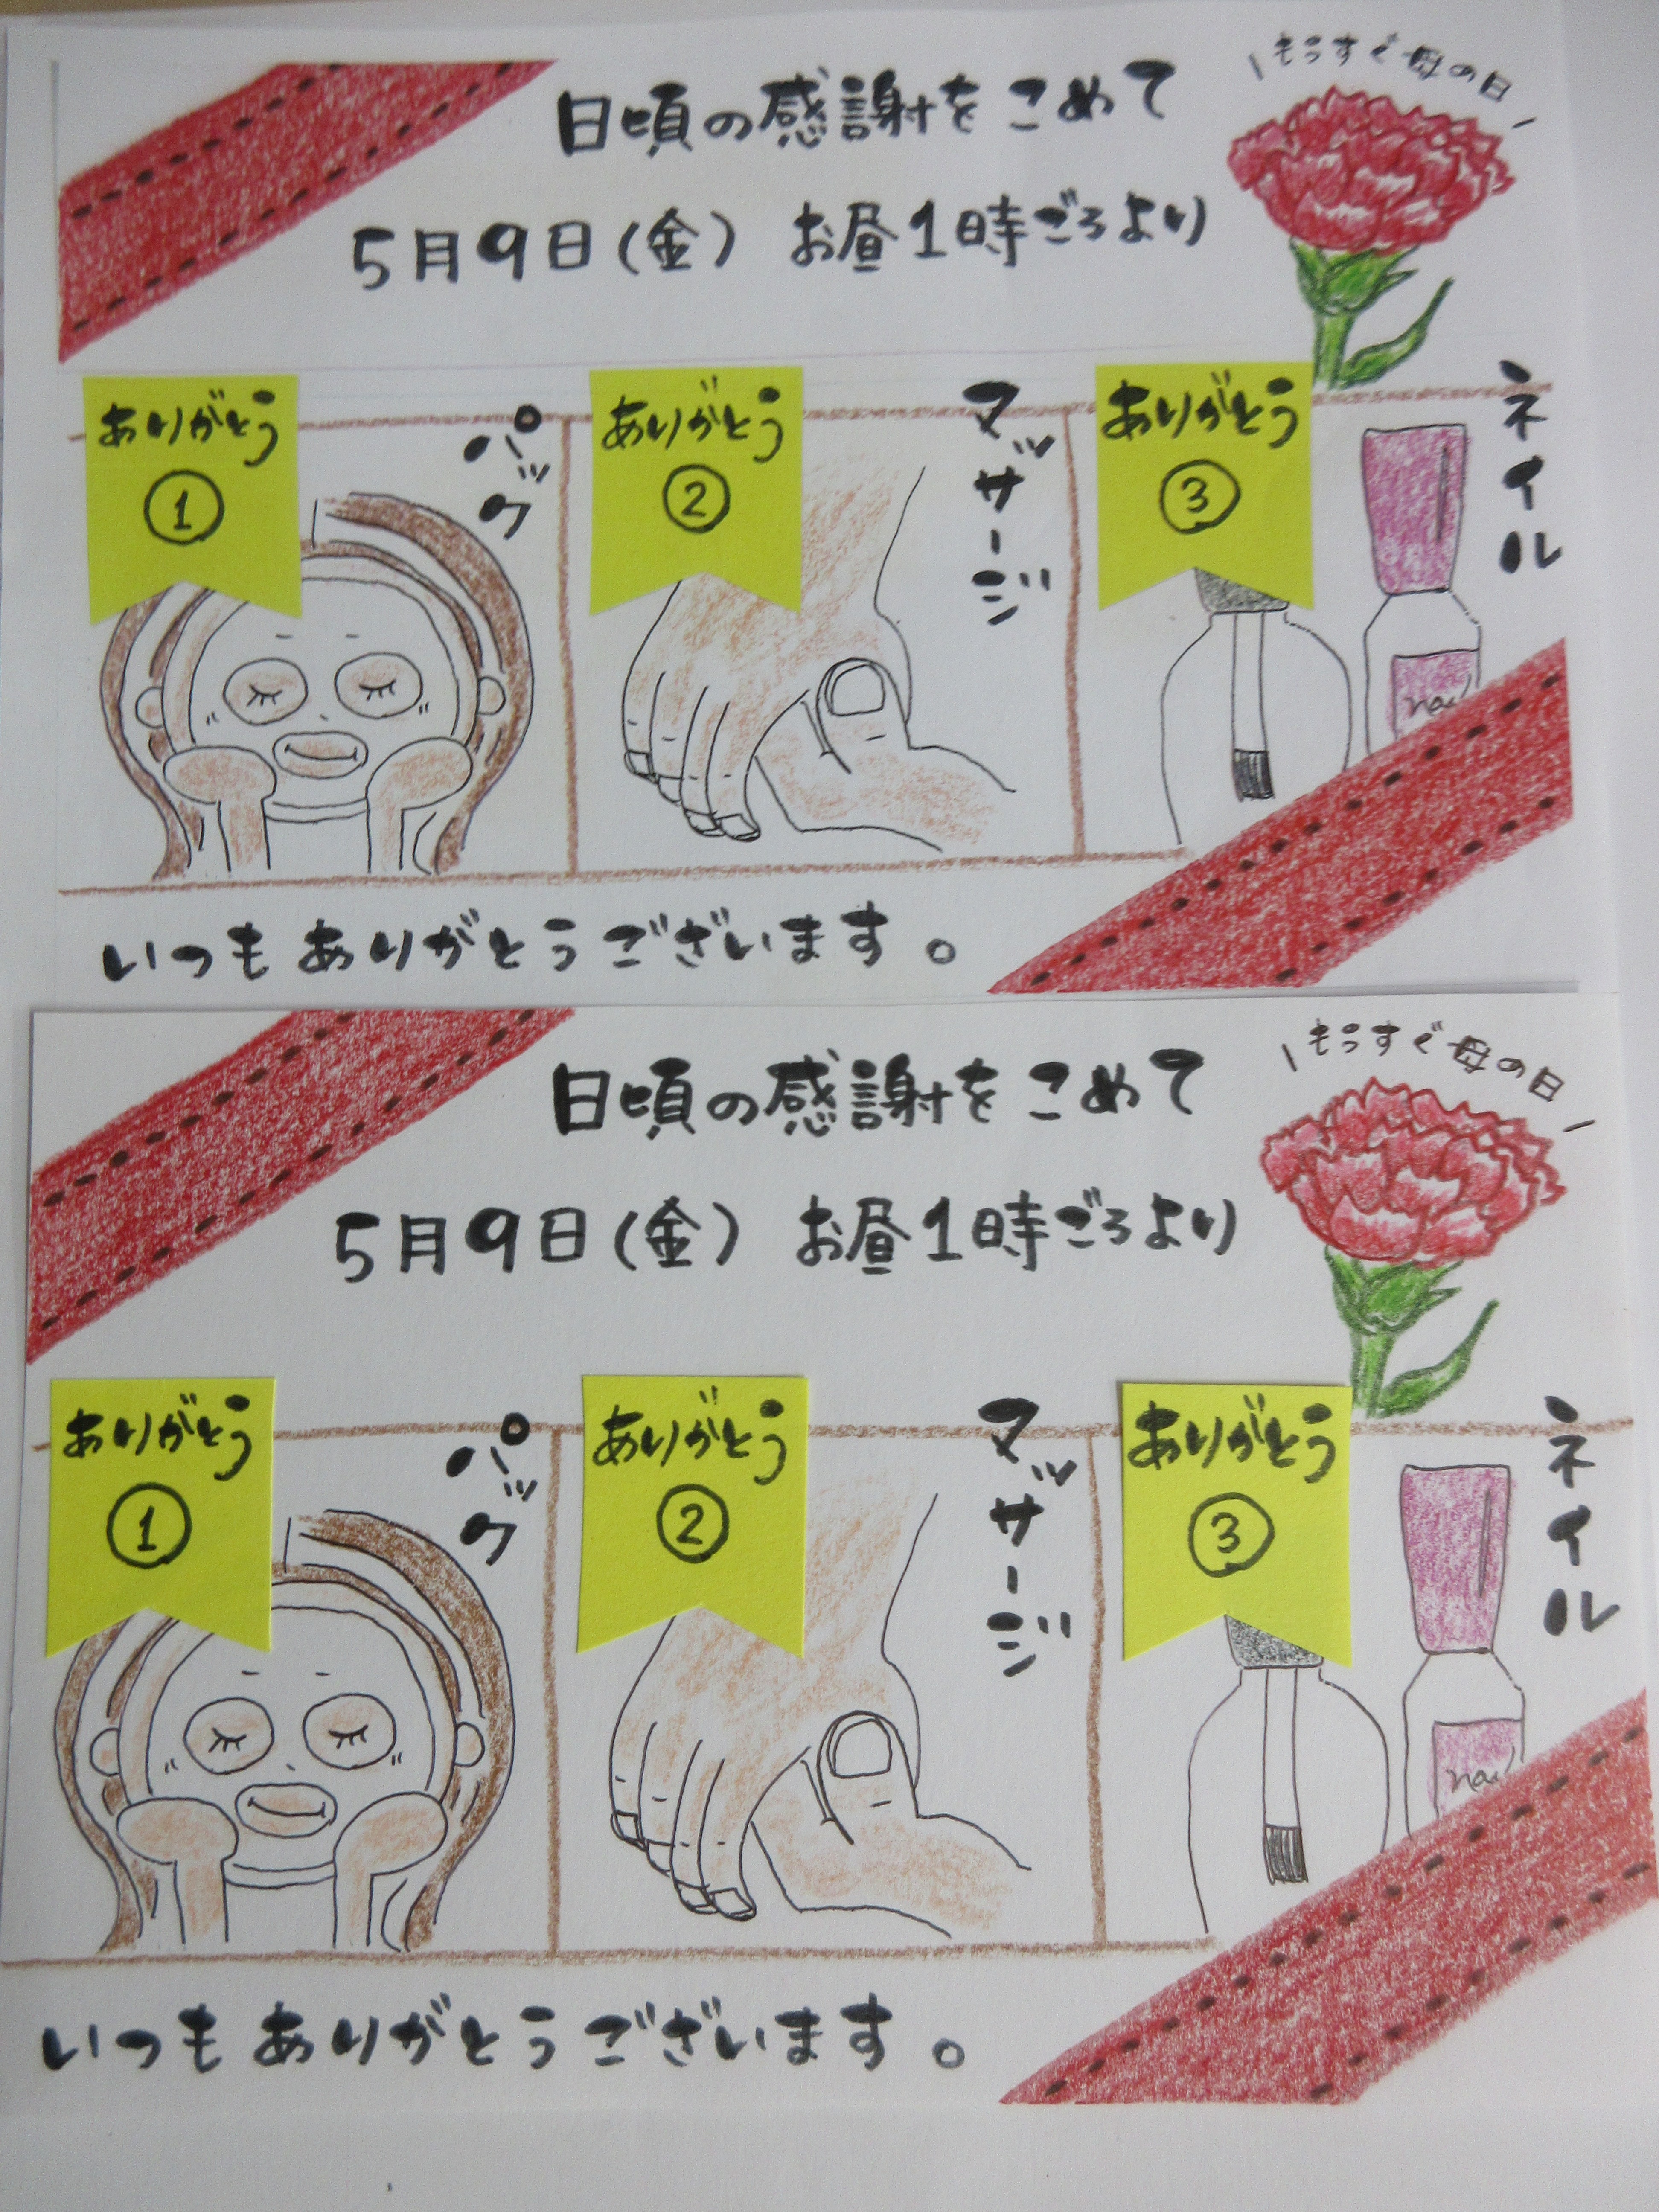 もうすぐ母の日
日頃の感謝をこめて
5月9日(金) お昼1時ごろより
ありがとう
①
パック
ありがとう
②
マッサージ
ありがとう
③
ネイル
nail
いつもありがとうございます。
もうすぐ母の日
日頃の感謝をこめて
5月9日(金) お昼1時ごろより
ありがとう
①
パック
ありがとう
②
マッサージ
ありがとう
③
ネイル
nail
いつもありがとうございます。